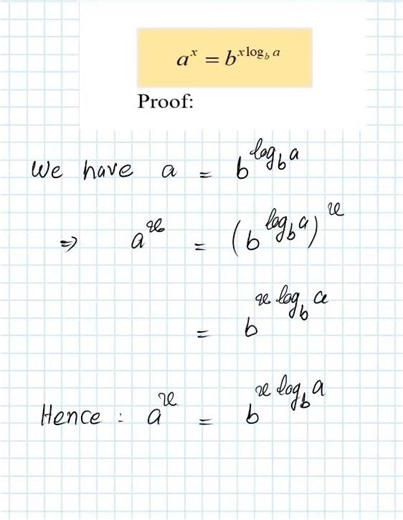 a^x = b^{x log_b a}
Proof:
We have a = b^{log_b a}
⇒ a^x = (b^{log_b a})^x
= b^{x log_b a}
Hence : a^x = b^{x log_b a}